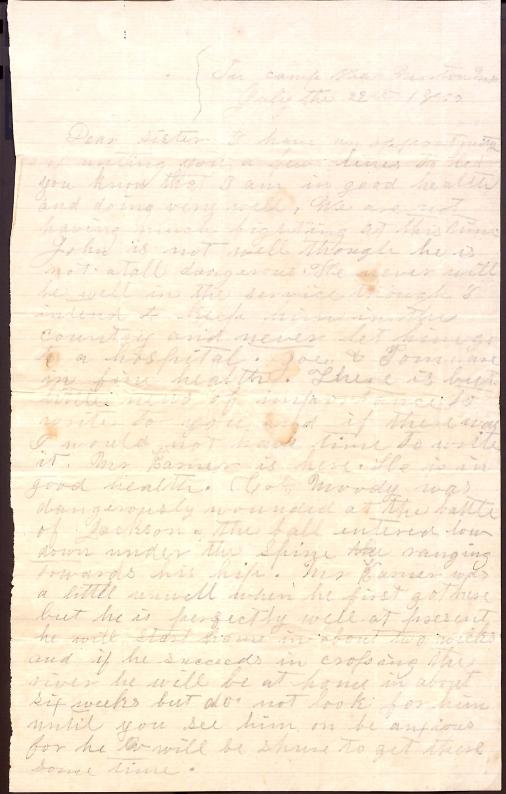 In camp Near
July the 22nd 1863
Dear Sister I have an opportunity
of writing you a few lines to let
you know that I am in good health
and doing very well, We are not
having much fighting at this time
John is not well though he is
not atall dangerous. He never will
be well in the service though I
intend to keep him in the
country and never let him go
to a hospital. Joe & Tom are
in fine health. There is but
little news of importance to
write to you and if there was
I would not have time to write
it. Mr Earner is here. He is in
good health. Col Moody was
dangerously wounded at the battle
of Jackson, the ball entered low
down under the spine ranging
towards his hip. Mr Earner was
a little unwell when he first got here
but he is perfectly well at present
he will start home in about two weeks
and if he succeeds in crossing the
river he will be at home in about
six weeks but do not look for him
until you see him or be anxious
for he will be shure to get there
some time.